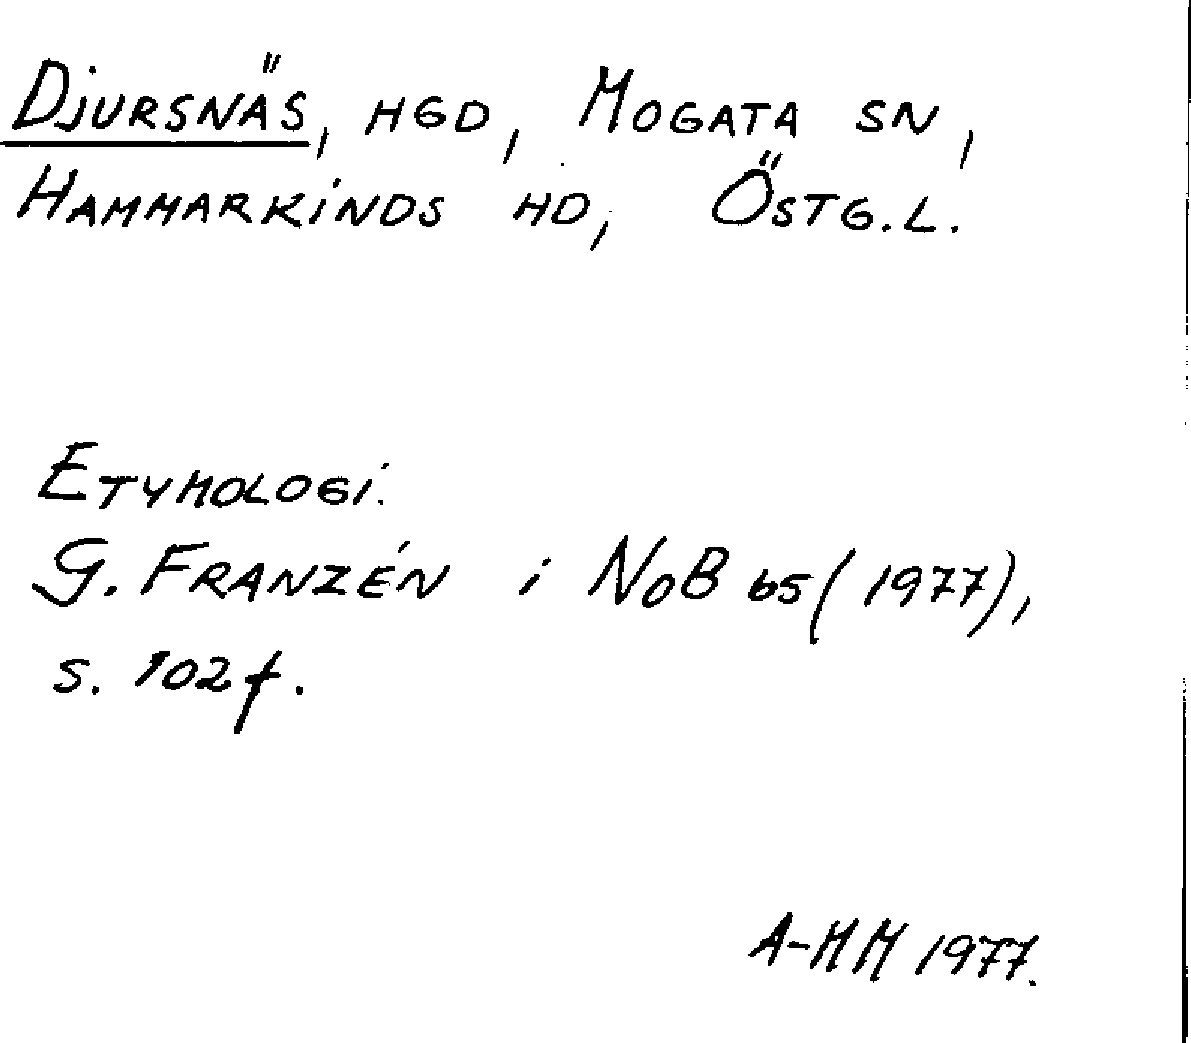 DJURSNÄS, HGD, MOGATA SN,
HAMMARKINDS HD, ÖSTG.L.
ETYMOLOGI.
G. FRANZÉN i NoB 65 (1977),
s. 102 f.
A-MM 1977.